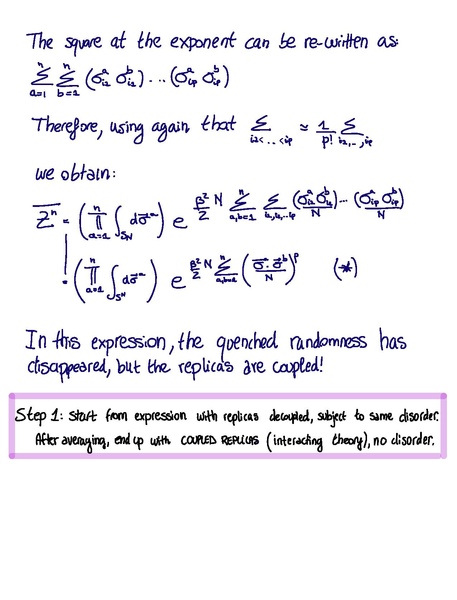 The square at the exponent can be re-written as:
∑_{a=1}^{n} ∑_{b=1}^{n} (σ_{i1}^a σ_{i1}^b) ... (σ_{ip}^a σ_{ip}^b)
Therefore, using again that ∑_{i1<..<ip} ≃ 1/p! ∑_{i1,..,ip}
we obtain:
\overline{Z^n} = (∏_{a=1}^{n} ∫_{S_N} dσ⃗^a) e^{β²/2 N ∑_{a,b=1}^{n} ∑_{i1,i2,..ip} (σ_{i1}^a σ_{i1}^b)/N ... (σ_{ip}^a σ_{ip}^b)/N}
= (∏_{a=1}^{n} ∫_{S_N} dσ⃗^a) e^{β²/2 N ∑_{a,b=1}^{n} (σ⃗^a·σ⃗^b/N)^p} (*)
In this expression, the quenched randomness has
disappeared, but the replicas are coupled!
Step 1: Start from expression with replicas decoupled, subject to same disorder.
After averaging, end up with COUPLED REPLICAS (interacting theory), no disorder.